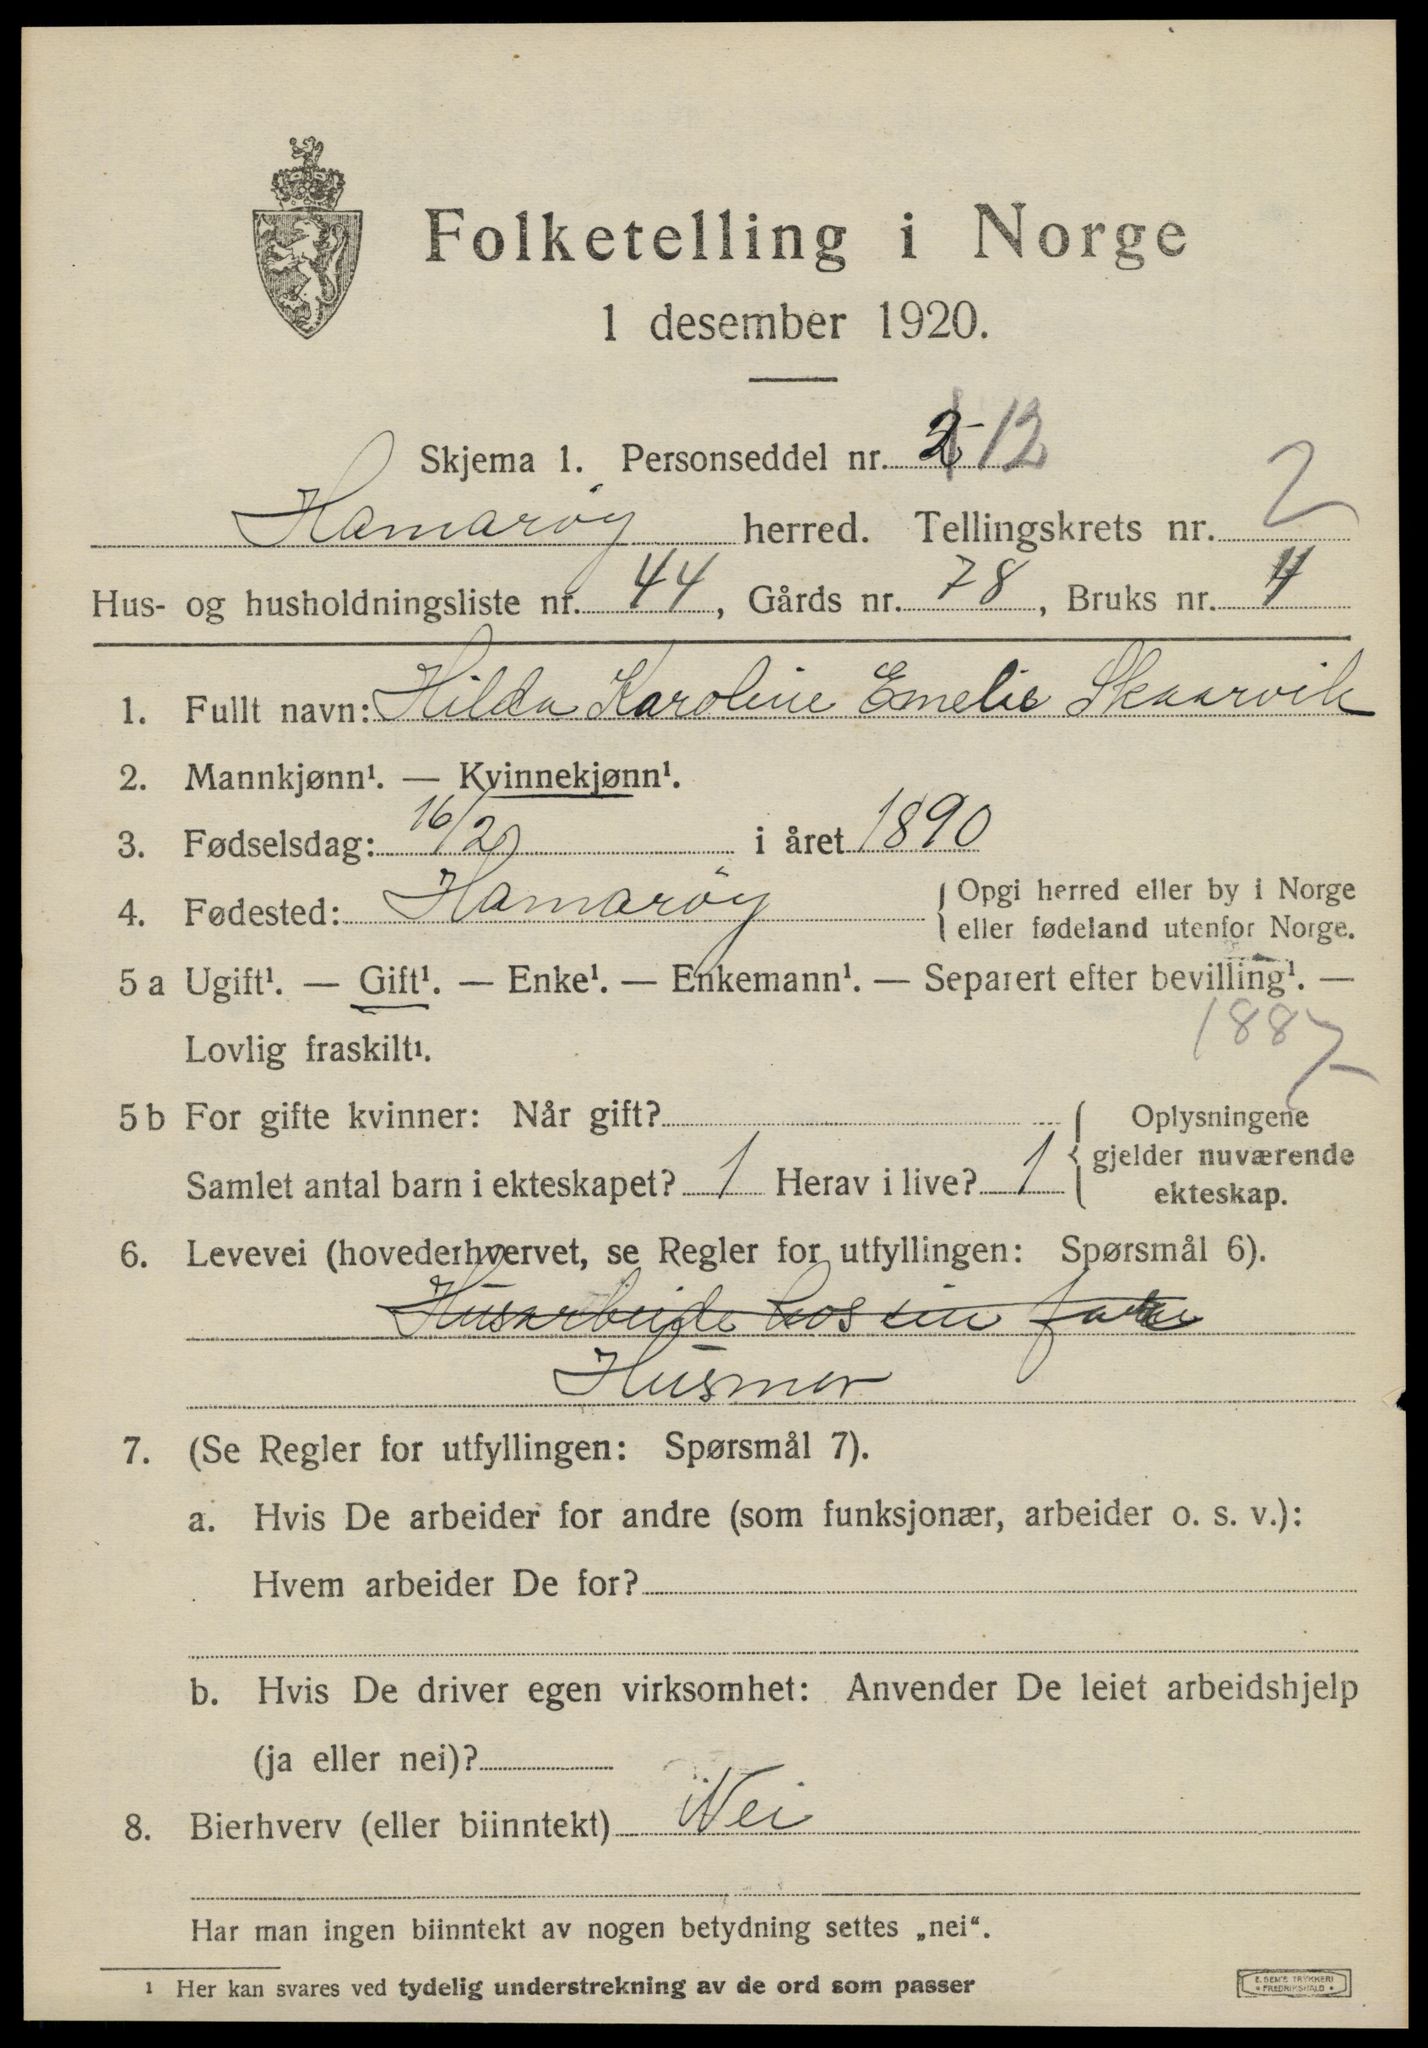 Folketelling i Norge
1 desember 1920.
Skjema 1. Personseddel nr. 2 12
Hamarøy herred. Tellingskrets nr. 2
Hus- og husholdningsliste nr. 44, Gårds nr. 78, Bruks nr. 4
1. Fullt navn: Hilda Karoline Emelie Skaarvik
2. Mannkjønn¹. — Kvinnekjønn¹.
3. Fødselsdag: 16/2 i året 1890
4. Fødested: Hamarøy { Opgi herred eller by i Norge
eller fødeland utenfor Norge.
5 a Ugift¹. — Gift¹. — Enke¹. — Enkemann¹. — Separert efter bevilling¹. —
Lovlig fraskilt¹.
1887
5 b For gifte kvinner: Når gift? { Oplysningene
gjelder nuværende
ekteskap.
Samlet antal barn i ekteskapet? 1 Herav i live? 1
6. Levevei (hovederhvervet, se Regler for utfyllingen: Spørsmål 6).
Husarbeide hos sin
Husmor
7. (Se Regler for utfyllingen: Spørsmål 7).
a. Hvis De arbeider for andre (som funksjonær, arbeider o. s. v.):
Hvem arbeider De for?
b. Hvis De driver egen virksomhet: Anvender De leiet arbeidshjelp
(ja eller nei)?
8. Bierhverv (eller biinntekt) Nei
Har man ingen biinntekt av nogen betydning settes „nei“.
¹ Her kan svares ved tydelig understrekning av de ord som passer
E. SEM'S TRYKKERI
FREDRIKSHALD